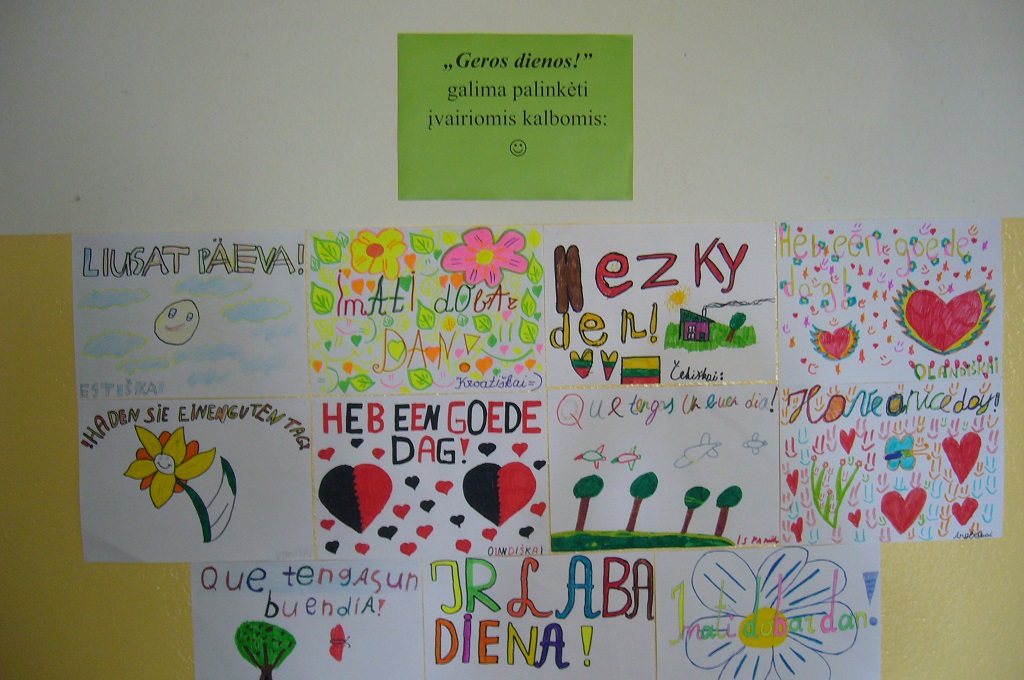 „Geros dienos!”
galima palinkėti
įvairiomis kalbomis:
LIUSAT PÄEVA!
ESTIŠKAI
ImATI dOBAr
DAN!
Kroatiškai=)
Nezky
den!
Čekiškai:
Heb eën goede
dag!
OLANDIŠKAI
!HADEN SIE EINENGUTEN TAG!
HEB EEN GOEDE
DAG!
OLANDIŠKAI
Que tengas un buen dia!
ISPANIŠ
Have a nice day!
Que tengAsun
buendia!
IR LABA
DIENA!
Imati dobar dan!